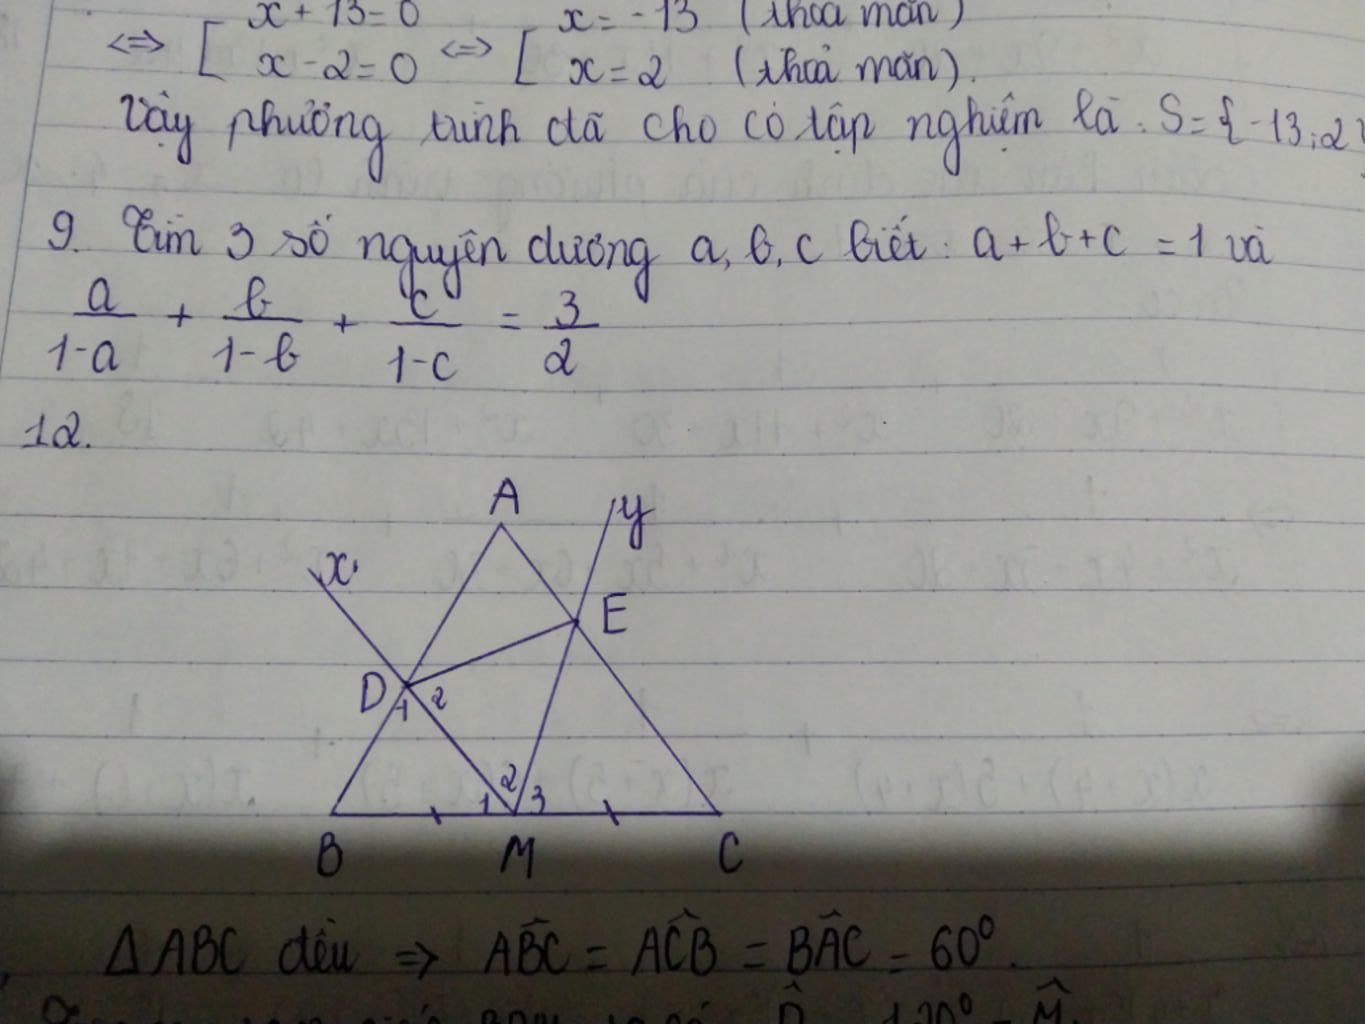 x + 13 = 0 x = -13 (thoả mãn)
⇔ [ ⇔ [
x - 2 = 0 x = 2 (thoả mãn).
Vậy phương trình đã cho có tập nghiệm là: S = {-13; 2}
9. Tìm 3 số nguyên dương a, b, c biết: a + b + c = 1 và
a/(1-a) + b/(1-b) + c/(1-c) = 3/2
12.
A
y
x
E
D
1 2
2
1 3
B M C
ΔABC đều ⇒ ABĈ = ACB̂ = BAĈ = 60°.